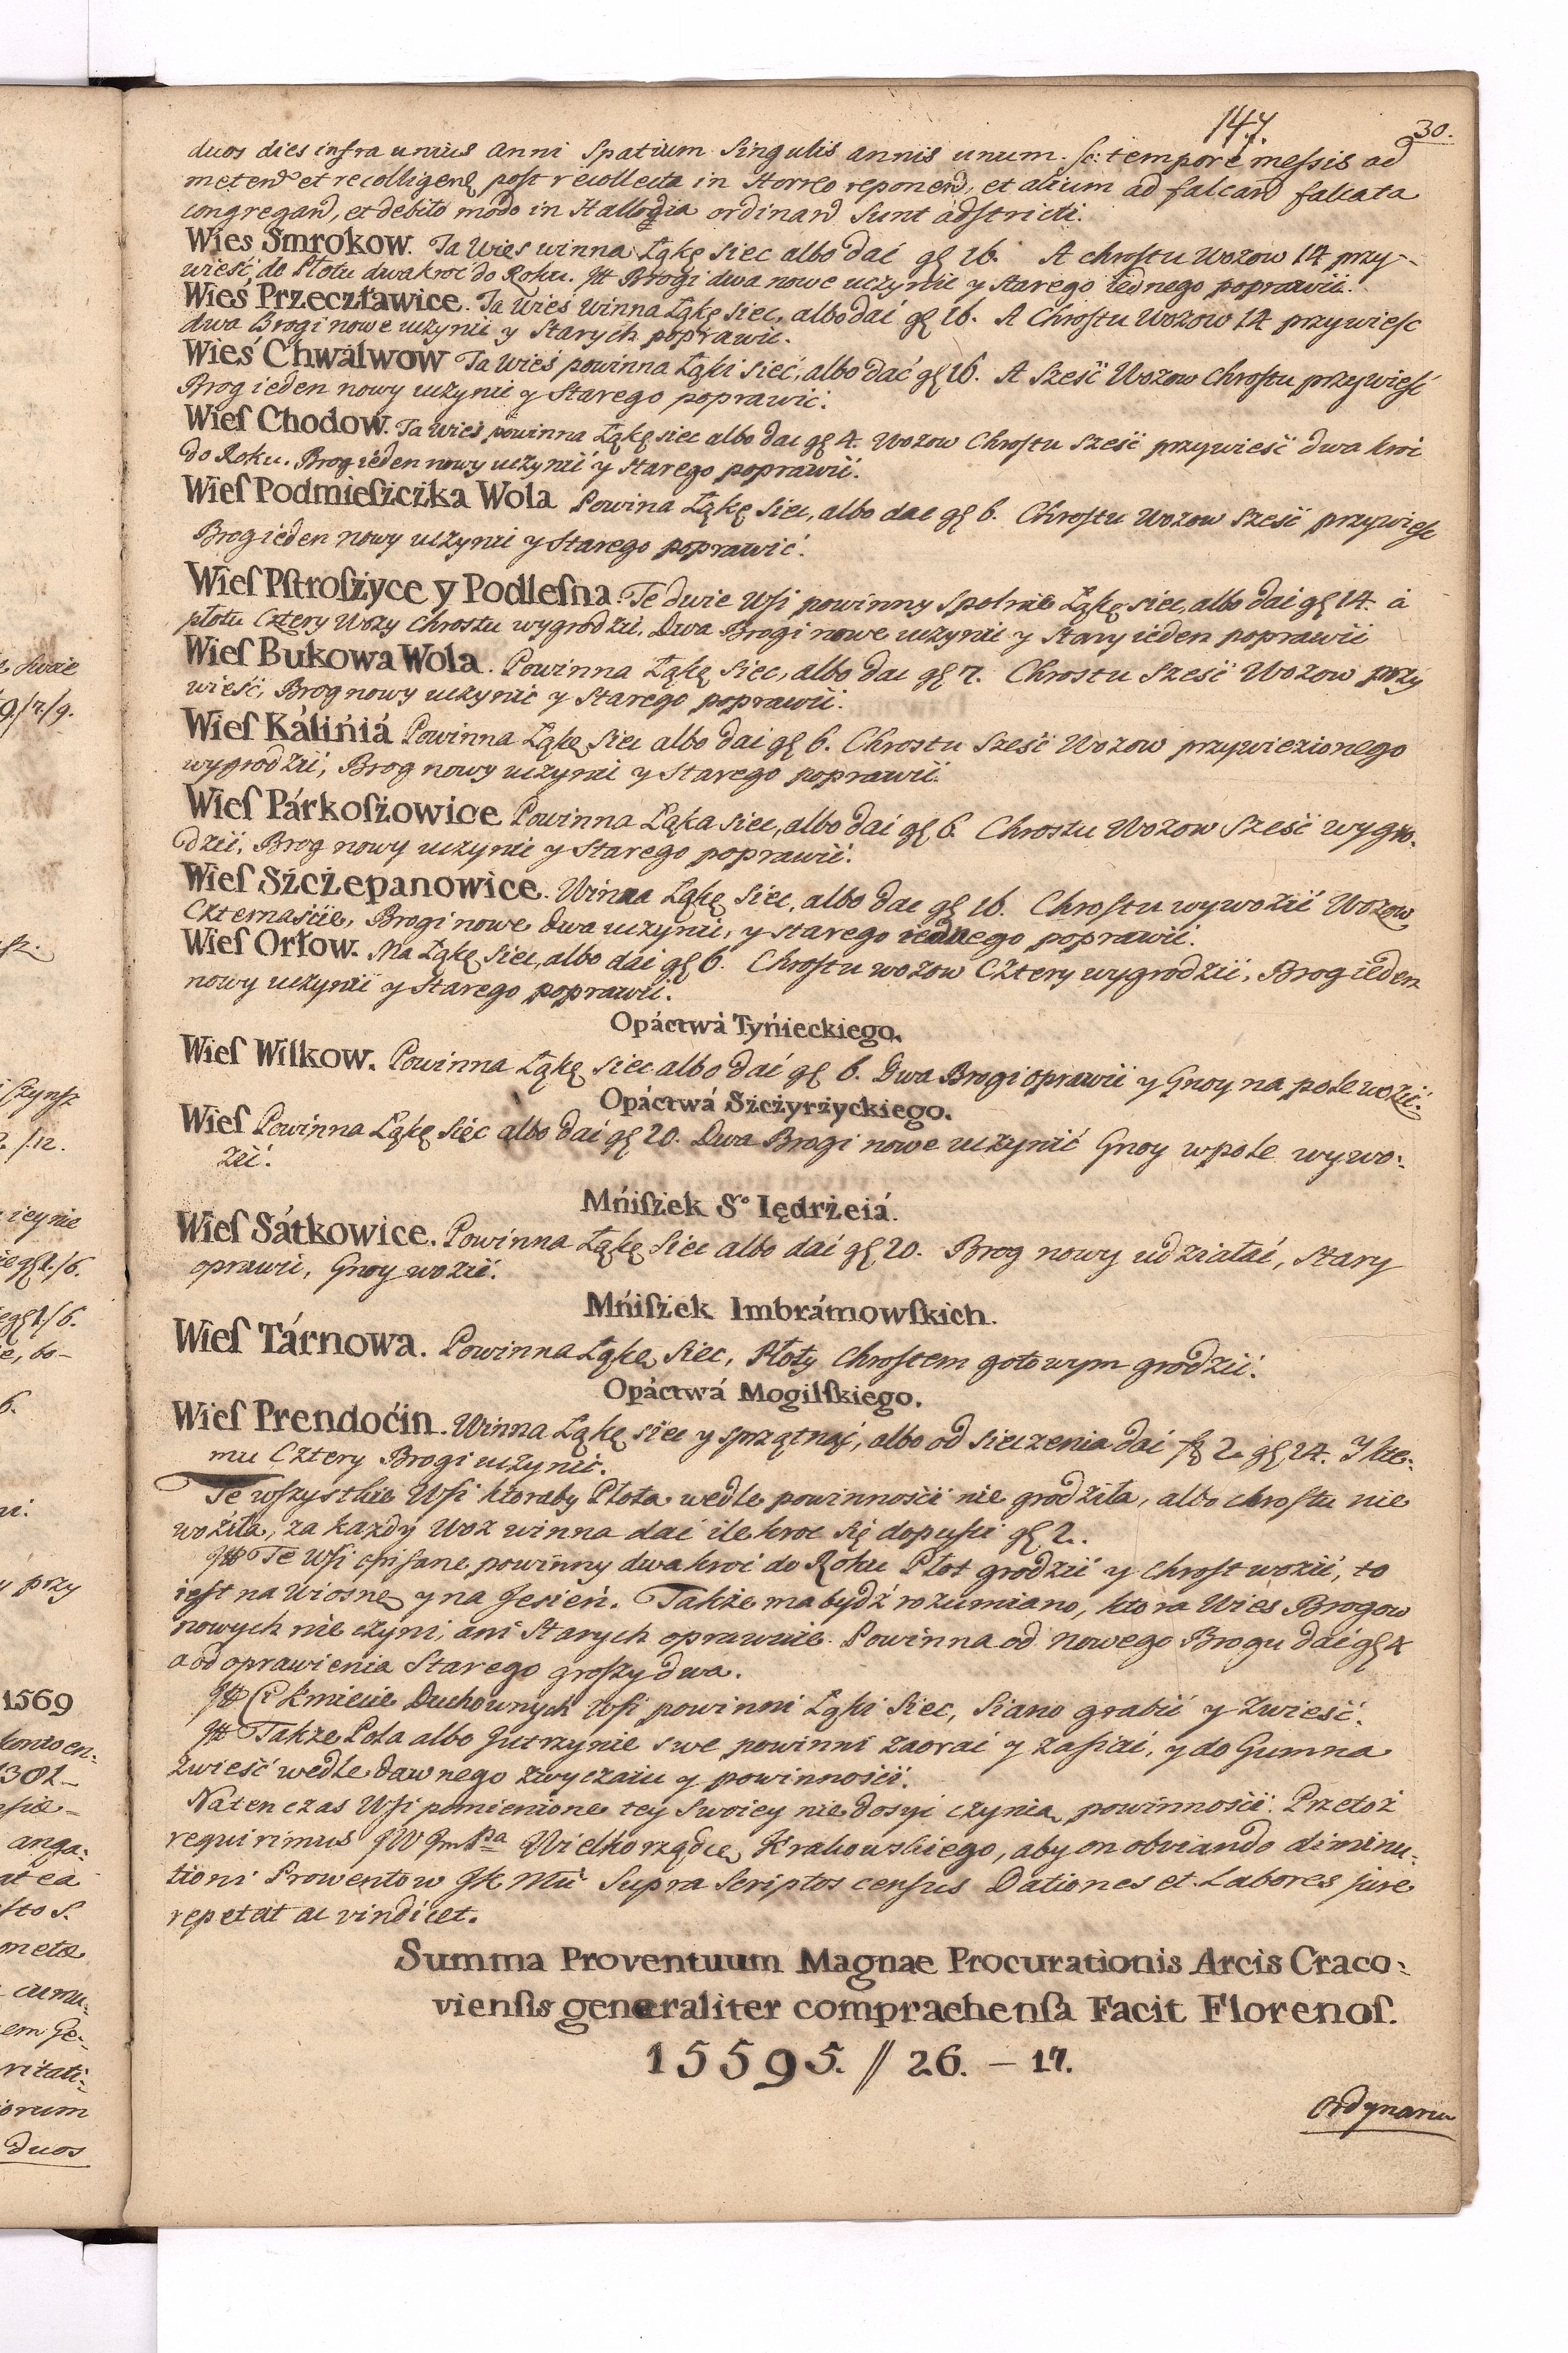 147. 30.
duos dies infra unius anni spatium singulis annis unum. sc: tempore messis ad
metend et recolligend post recollecta in Horreo reponend, et alium ad falcand falcata
congregand, et debito modo in Hallodia ordinand sunt adstricti.
Wies Smrokow. Ta Wies winna Łąkę siec albo dać gr 16. A chrostu Wozow 14 przy-
wieść do Płotu dwakroc do Roku. Itt Brogi dwa nowe uczynić y starego iednego poprawić.
Wieś Przeczławice. Ta Wieś winna Łąkę siec, albo dać gr 16. A Chrostu Wozow 14 przywiesc
dwa Brogi nowe uczynić y Starych poprawić.
Wieś Chwálwow Ta Wieś powinna Łąki sieć, albo dać gr 16. A Sześć Wozow Chrostu przywieść
Brog ieden nowy uczynić y Starego poprawić.
Wieſ Chodow. Ta Wieś powinna Łąkę siec albo dac gr 4. Wozow Chrostu Sześć przywieść dwa kroć
do Roku. Brog ieden nowy uczynić y starego poprawić.
Wieſ Podmieſzczka Wola Powina Łąkę siec, albo dac gr 6. Chrostu Wozow sześć przywiesc
Brog ieden nowy uczynić y Starego poprawić.
Wieſ Pſtroſzyce y Podleſna. Te dwie Wsi powinny spolnie Łąkę siec, albo dać gr 14. á
płotu Cztery Wozy Chrostu wygrodzić. Dwa Brogi nowe uczynić y Stary ieden poprawić
Wieſ Bukowa Wola. Powinna Łąkę siec, albo dac gr 7. Chrostu Sześć Wozow przy
wieść, Brog nowy uczynić y Starego poprawić.
Wieſ Kálińiá Powinna Łąkę siec albo dać gr 6. Chrostu Sześć Wozow przywiezionego
wygrodzić, Brog nowy uczynić y Starego poprawić.
Wieſ Párkoſzowice Powinna Łąka siec, albo dać gr 6. Chrostu Wozow Sześć wygro-
dzić, Brog nowy uczynić y Starego poprawić.
Wieſ Szczepanowice. Winna Łąkę siec, albo dac gr 16. Chrostu wywozić Wozow
Czternaście, Brogi nowe Dwa uczynić, y starego iednego poprawić.
Wieſ Orłow. Ma Łąkę siec, albo dać gr 6. Chrostu wozow Cztery wygrodzić, Brog ieden
nowy uczynić y Starego poprawić.
Opáctwá Tyńieckiego.
Wieſ Wilkow. Powinna Łąkę siec albo dać gr 6. Dwa Brogi oprawić y Gnoy na pole wozić.
Opáctwá Szczyrzyckiego.
Wieſ Powinna Łąkę siec albo dać gr 20. Dwa Brogi nowe uczynić Gnoy w pole wywo:
zić.
Mńiſzek So Iędrzeiá.
Wieſ Sátkowice. Powinna Łąkę siec albo dać gr 20. Brog nowy udziałać, stary
oprawić, Gnoy wozić.
Mńiſzek Imbrámowſkich.
Wieſ Tárnowa. Powinna Łąkę siec, Płoty Chrostem gotowym grodzić.
Opáctwá Mogilſkiego.
Wieſ Prendoćin. Winna Łąkę siec y sprzątnąć, albo od sieczenia dać fl 2 gr 24. I kte:
mu Cztery Brogi uczynić.
Te wszystkie Wsi ktoraby Płota wedle powinności nie grodziła, albo chrostu nie
woziła, za kazdy Woz winna dać ilekroc się dopuści gr 2.
Itt Te Wsi opisane powinny dwakroć do Roku Płot grodzić y chrost wozić, to
iest na Wiosnę y na Jesień. Także ma bydź rozumiano, ktora Wies Brogow
nowych nie czyni, ani Starych oprawuie. Powinna od nowego Brogu dać gr 4
a od oprawienia Starego groszy dwa.
Itt Ci kmiecie Duchownych Wsi powinni Łąki siec, Siano grabić y zwieść.
Itt Także Pola albo Jutrzynie swe powinni zaorać y zasiać, y do Gumna
zwieść wedle dawnego zwyczaiu y powinności.
Naten czas Wsi pomienione tey swoiey nie dosyć czynią powinności. Przetoż
requirimus JW Jm Pa Wielkorządcę Krakowskiego, aby on obviando diminu:
tioni Prowentow JK Mći Supra Scriptos census Dationes et Labores jure
repetat ac vindicet.
Summa Proventuum Magnae Procurationis Arcis Craco:
vienſis generaliter comprachenſa Facit Florenoſ.
15595. // 26. – 17.
Ordynaria
1569
duos